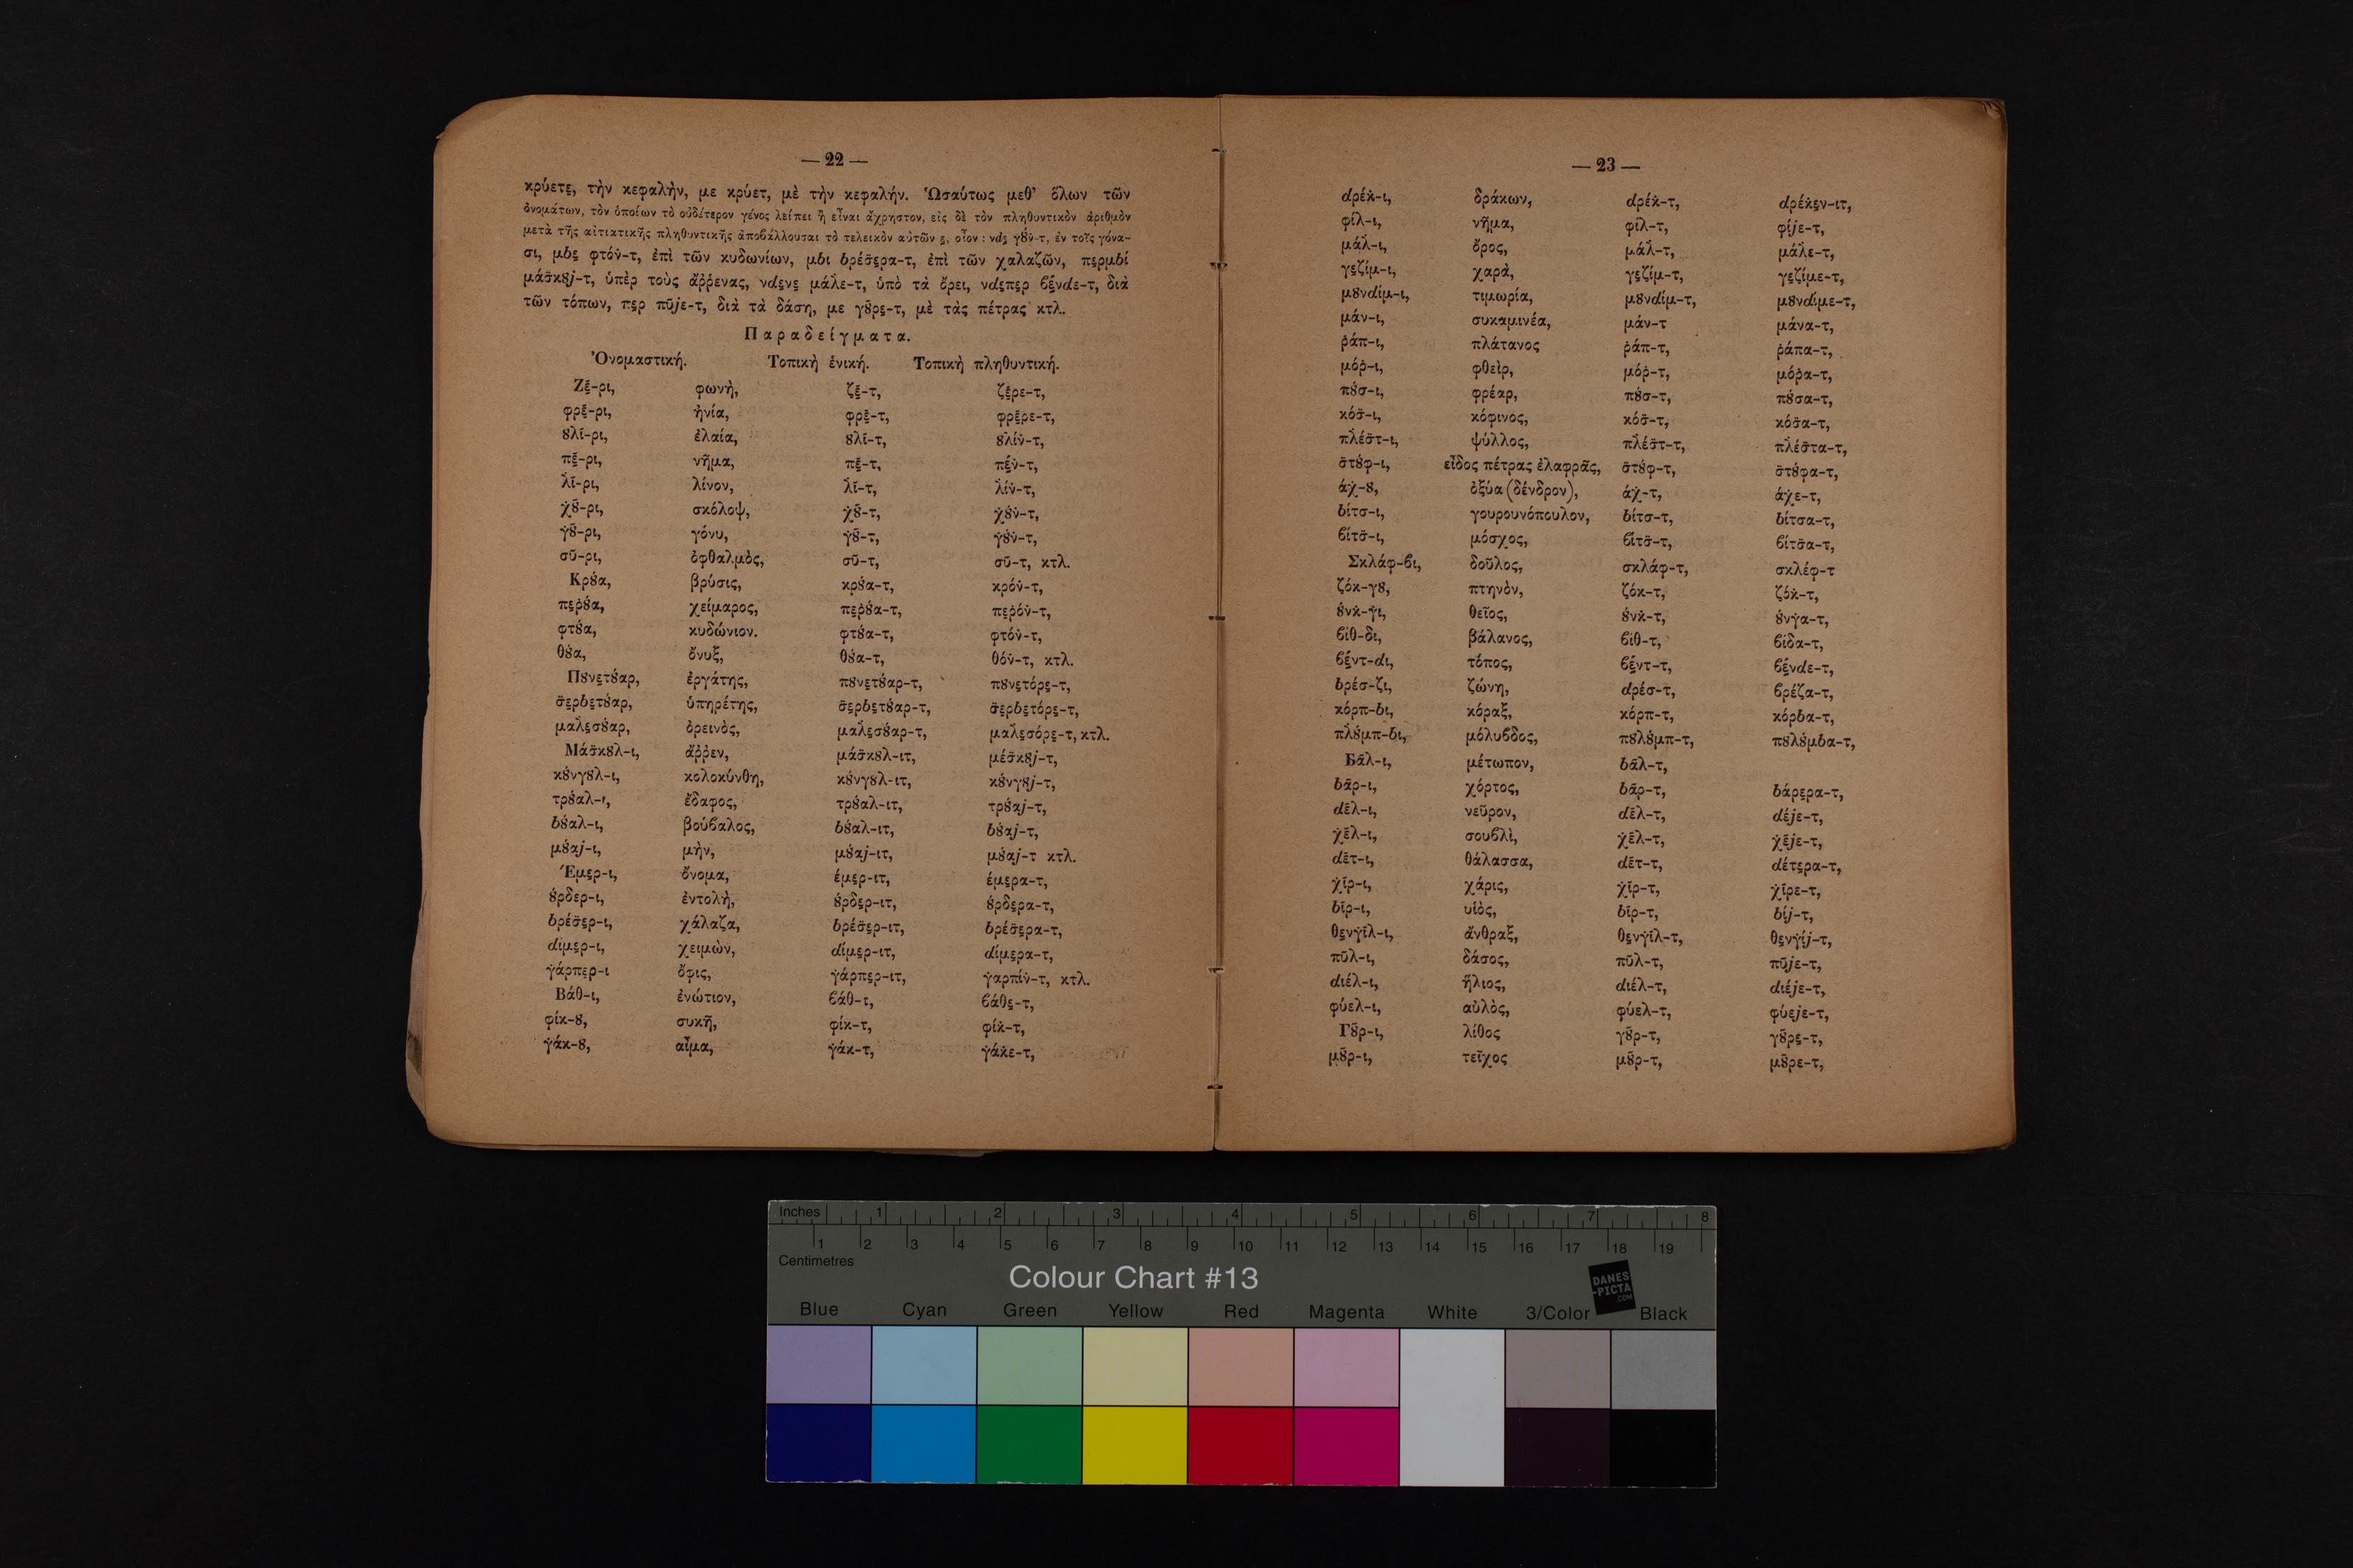 — 22 —
κρύετε̱, τὴν κεφαλὴν, με κρύετ, μὲ τὴν κεφαλήν. Ὡσαύτως μεθ' ὅλων τῶν
ὀνομάτων, τὸν ὁποίων τὸ οὐδέτερον γένος λείπει ἢ εἶναι ἄχρηστον, εἰς δὲ τὸν πληθυντικὸν ἀριθμὸν
μετὰ τῆς αἰτιατικῆς πληθυντικῆς ἀποβάλλουσαι τὸ τελεικὸν αὐτῶν ε̱, οἷον : νdε̱ γȣ́ν̇-τ, ἐν τοῖς γόνα-
σι, μbε̱ φτόν̇-τ, ἐπὶ τῶν κυδωνίων, μbι bρέσ̄ε̱ρα-τ, ἐπὶ τῶν χαλαζῶν, πε̱ρμbί
μάσ̄κȣj-τ, ὑπὲρ τοὺς ἄῤῥενας, νdε̱νε̱ μάλ̇ε-τ, ὑπὸ τὰ ὄρει, νdε̱πε̱ρ βέ̱νdε-τ, διὰ
τῶν τόπων, πε̱ρ πῡjε-τ, διὰ τὰ δάση, με γȣ̄ρε̱-τ, μὲ τὰς πέτρας κτλ.
Παραδείγματα.
Ὀνομαστική. Τοπικὴ ἑνική. Τοπικὴ πληθυντική.
Ζε̱̄-ρι, φωνὴ, ζε̱̄-τ, ζε̱̄ρε-τ,
φρε̱̄-ρι, ἡνία, φρε̱̄-τ, φρε̱̄ρε-τ,
ȣλῑ-ρι, ἐλαία, ȣλῑ-τ, ȣλίν̇-τ,
πε̱̄-ρι, νῆμα, πε̱̄-τ, πέ̱ν̇-τ,
λ̇ῑ-ρι, λίνον, λ̇ῑ-τ, λ̇ίν̇-τ,
χ̇ȣ̄-ρι, σκόλοψ, χ̇ȣ̄-τ, χ̇ȣ́ν̇-τ,
γ̇ȣ̄-ρι, γόνυ, γ̇ȣ̄-τ, γ̇ȣ́ν̇-τ,
σῡ-ρι, ὀφθαλμὸς, σῡ-τ, σῡ-τ, κτλ.
Κρȣ́α, βρύσις, κρȣ́α-τ, κρόν̇-τ,
πε̱ῤȣ́α, χείμαρος, πε̱ῤȣ́α-τ, πε̱ῤόν̇-τ,
φτȣ́α, κυδώνιον. φτȣ́α-τ, φτόν̇-τ,
θȣ́α, ὄνυξ, θȣ́α-τ, θόν̇-τ, κτλ.
Πȣνε̱τȣ́αρ, ἐργάτης, πȣνε̱τȣ́αρ-τ, πȣνε̱τόρε̱-τ,
σ̄ε̱ρbε̱τȣ́αρ, ὑπηρέτης, σ̄ε̱ρbε̱τȣ́αρ-τ, σ̄ε̱ρbε̱τόρε̱-τ,
μαλ̇ε̱σȣ́αρ, ὀρεινὸς, μαλ̇ε̱σȣ́αρ-τ, μαλ̇ε̱σόρε̱-τ, κτλ.
Μάσ̄κȣλ-ι, ἄῤῥεν, μάσ̄κȣλ-ιτ, μέσ̄κȣj-τ,
κȣ́νγȣλ-ι, κολοκύνθη, κȣ́νγȣλ-ιτ, κȣ́νγȣj-τ,
τρȣ́αλ-ι, ἔδαφος, τρȣ́αλ-ιτ, τρȣ́αj-τ,
bȣ́αλ-ι, βούβαλος, bȣ́αλ-ιτ, bȣ́αj-τ,
μȣ́αj-ι, μὴν, μȣ́αj-ιτ, μȣ́αj-τ κτλ.
Έμε̱ρ-ι, ὄνομα, έμε̱ρ-ιτ, έμε̱ρα-τ,
ȣ́ρδερ-ι, ἐντολὴ, ȣ́ρδε̱ρ-ιτ, ȣ́ρδε̱ρα-τ,
bρέσ̄ε̱ρ-ι, χάλαζα, bρέσ̄ε̱ρ-ιτ, bρέσ̄ε̱ρα-τ,
dίμε̱ρ-ι, χειμὼν, dίμε̱ρ-ιτ, dίμε̱ρα-τ,
γ̇άρπε̱ρ-ι ὄφις, γ̇άρπε̱ρ-ιτ, γ̇αρπίν̇-τ, κτλ.
Βάθ-ι, ἐνώτιον, βάθ-τ, βάθε̱-τ,
φίκ-ȣ, συκῆ, φίκ-τ, φίκ̇-τ,
γ̇άκ-ȣ, αἷμα, γ̇άκ-τ, γ̇άκ̇ε-τ,
— 23 —
dρέκ̇-ι, δράκων, dρέκ̇-τ, dρέκ̇ε̱ν-ιτ,
φίλ-ι, νῆμα, φίλ-τ, φίjε-τ,
μάλ̇-ι, ὄρος, μάλ̇-τ, μάλ̇ε-τ,
γε̱ζίμ-ι, χαρὰ, γε̱ζίμ-τ, γε̱ζίμε-τ,
μȣνdίμ-ι, τιμωρία, μȣνdίμ-τ, μȣνdίμε-τ,
μάν-ι, συκαμινέα, μάν-τ μάνα-τ,
ῤάπ-ι, πλάτανος ῤάπ-τ, ῤάπα-τ,
μόῤ-ι, φθεὶρ, μόῤ-τ, μόῤα-τ,
πȣ́σ-ι, φρέαρ, πȣ́σ-τ, πȣ́σα-τ,
κόσ̄-ι, κόφινος, κόσ̄-τ, κόσ̄α-τ,
πλ̇έσ̄τ-ι, ψύλλος, πλ̇έσ̄τ-τ, πλ̇έσ̄τα-τ,
σ̄τȣ́φ-ι, εἶδος πέτρας ἐλαφρᾶς, σ̄τȣ́φ-τ, σ̄τȣ́φα-τ,
άχ̇-ȣ, ὀξύα (δένδρον), άχ̇-τ, άχ̇ε-τ,
bίτσ-ι, γουρουνόπουλον, bίτσ-τ, bίτσα-τ,
βίτσ̄-ι, μόσχος, βίτσ̄-τ, βίτσ̄α-τ,
Σκλάφ-βι, δοῦλος, σκλάφ-τ, σκλέφ-τ
ζόκ-γȣ, πτηνὸν, ζόκ-τ, ζόκ̇-τ,
ȣ́νκ̇-γ̇ι, θεῖος, ȣ́νκ̇-τ, ȣ́νγ̇α-τ,
βίθ-δι, βάλανος, βίθ-τ, βίδα-τ,
βέ̱ντ-dι, τόπος, βέ̱ντ-τ, βέ̱νdε-τ,
bρέσ-ζι, ζώνη, dρέσ-τ, βρέζα-τ,
κόρπ-bι, κόραξ, κόρπ-τ, κόρbα-τ,
πλ̇ȣ́μπ-bι, μόλυβδος, πȣλȣ́μπ-τ, πȣλȣ́μbα-τ,
Бᾱλ-ι, μέτωπον, bᾱλ-τ,
bᾱρ-ι, χόρτος, bᾱρ-τ, bάρε̱ρα-τ,
dε̄λ-ι, νεῦρον, dε̄λ-τ, dέjε-τ,
χ̇ε̄λ-ι, σουβλὶ, χ̇ε̄λ-τ, χ̇ε̄jε-τ,
dε̄τ-ι, θάλασσα, dε̄τ-τ, dέτε̱ρα-τ,
χ̇ῑρ-ι, χάρις, χ̇ῑρ-τ, χ̇ῑρε-τ,
bῑρ-ι, υἱὸς, bῑρ-τ, bίj-τ,
θε̱νγ̇ῑλ-ι, ἄνθραξ, θε̱νγ̇ῑλ-τ, θε̱νγ̇ίj-τ,
πῡλ-ι, δάσος, πῡλ-τ, πῡjε-τ,
dιέλ-ι, ἥλιος, dιέλ-τ, dιέjε-τ,
φύελ-ι, αὐλὸς, φύελ-τ, φύεjε-τ,
Γȣ̄ρ-ι, λίθος γȣ̄ρ-τ, γȣ̄ρε̱-τ,
μȣ̄ρ-ι, τεῖχος μȣ̄ρ-τ, μȣ̄ρε-τ,
Inches 1 2 3 4 5 6 7 8
1 2 3 4 5 6 7 8 9 10 11 12 13 14 15 16 17 18 19
Centimetres
Colour Chart #13
DANES
-PICTA
.COM
Blue Cyan Green Yellow Red Magenta White 3/Color Black